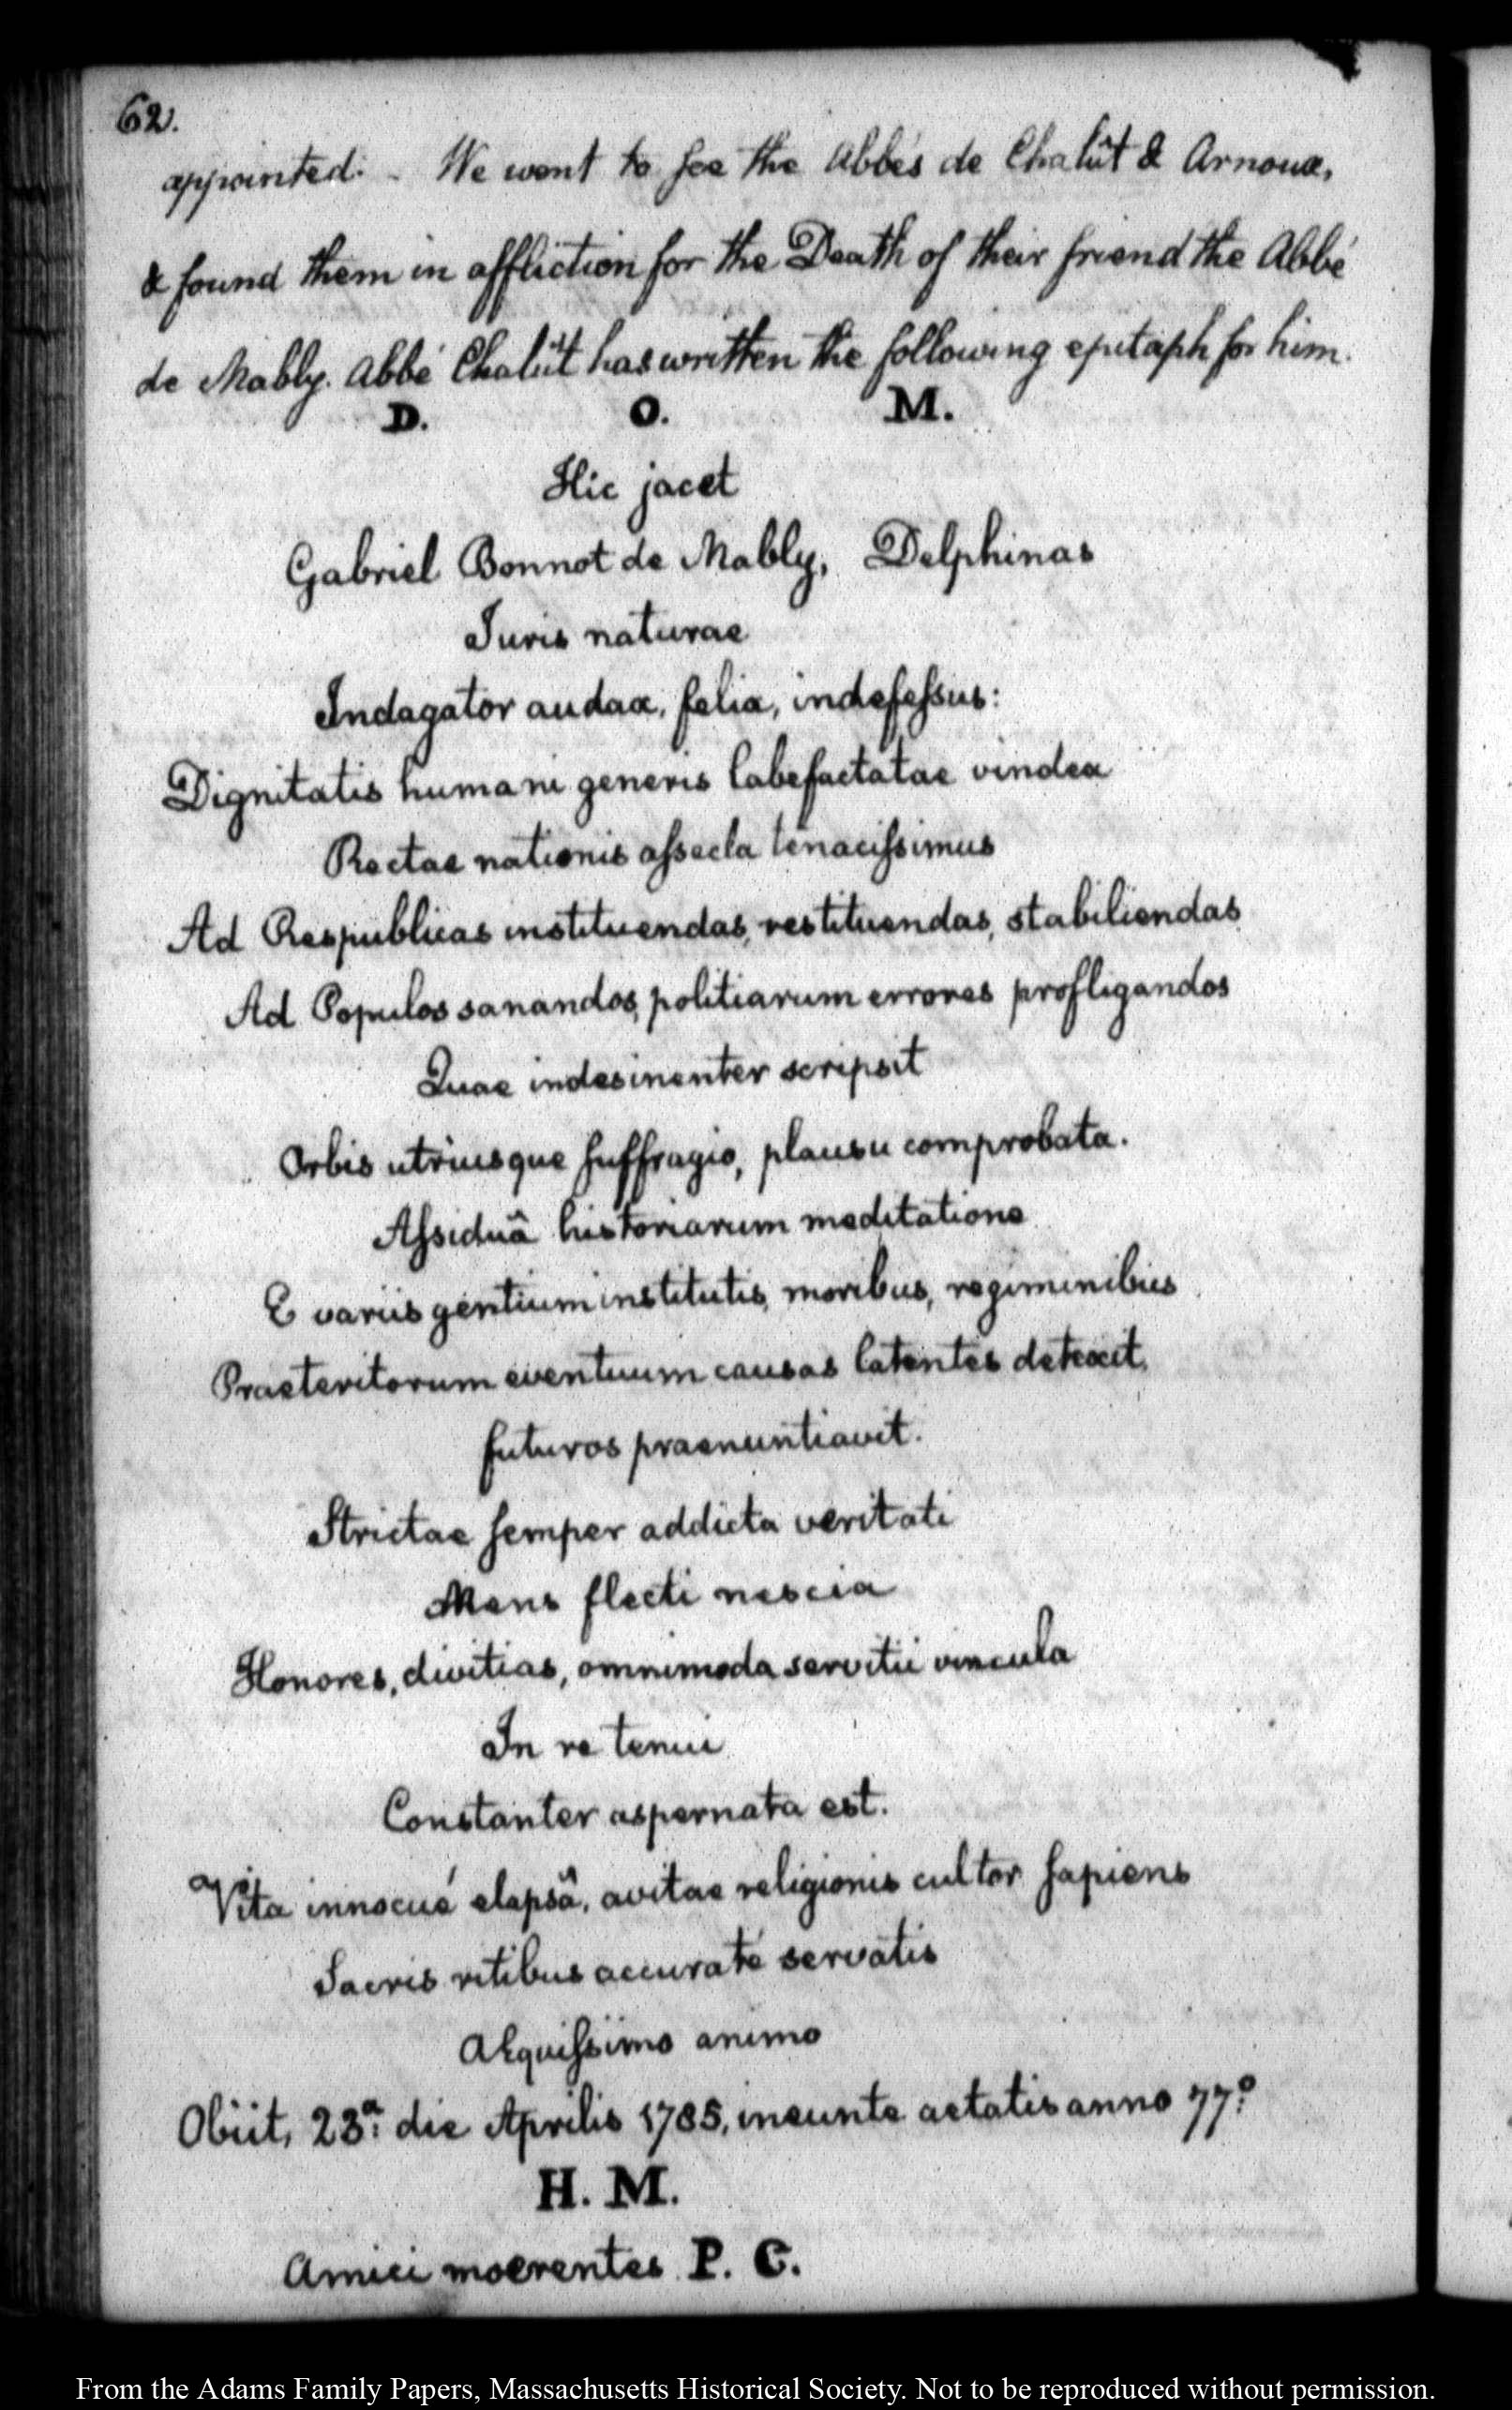 62.
appointed. - We went to see the Abbés de Chalût & Arnoux,
& found them in affliction for the Death of their friend the Abbé
de Mably. Abbé Chalût has written the following epitaph for him.
D. O. M.
Hic jacet
Gabriel Bonnot de Mably, Delphinas
Juris naturae
Indagator audax, felix, indefessus:
Dignitatis humani generis labefactatae vindex
Rectae nationis assecla tenacissimus
Ad Respublicas instituendas, restituendas, stabiliendas
Ad Populos sanandos, politiarum errores profligandos
Quae indesinenter scripsit
Orbis utriusque suffragio, plausu comprobata.
Assiduâ historiarum meditatione
E variis gentium institutis, moribus, regiminibus
Praeteritorum eventuum causas latentes detexit,
futuros praenuntiavit.
Strictae semper addicta veritati
Mens flecti nescia
Honores, divitias, omnimoda servitii vincula
In re tenui
Constanter aspernata est.
Vita innocué elapsâ, avitae religionis cultor sapiens
Sacris ritibus accuraté servatis
AEquissimo animo
Obiit, 23.a die Aprilis 1785, ineunte aetatis anno 77.o
H. M.
Amici moerentes P. C.
From the Adams Family Papers, Massachusetts Historical Society. Not to be reproduced without permission.